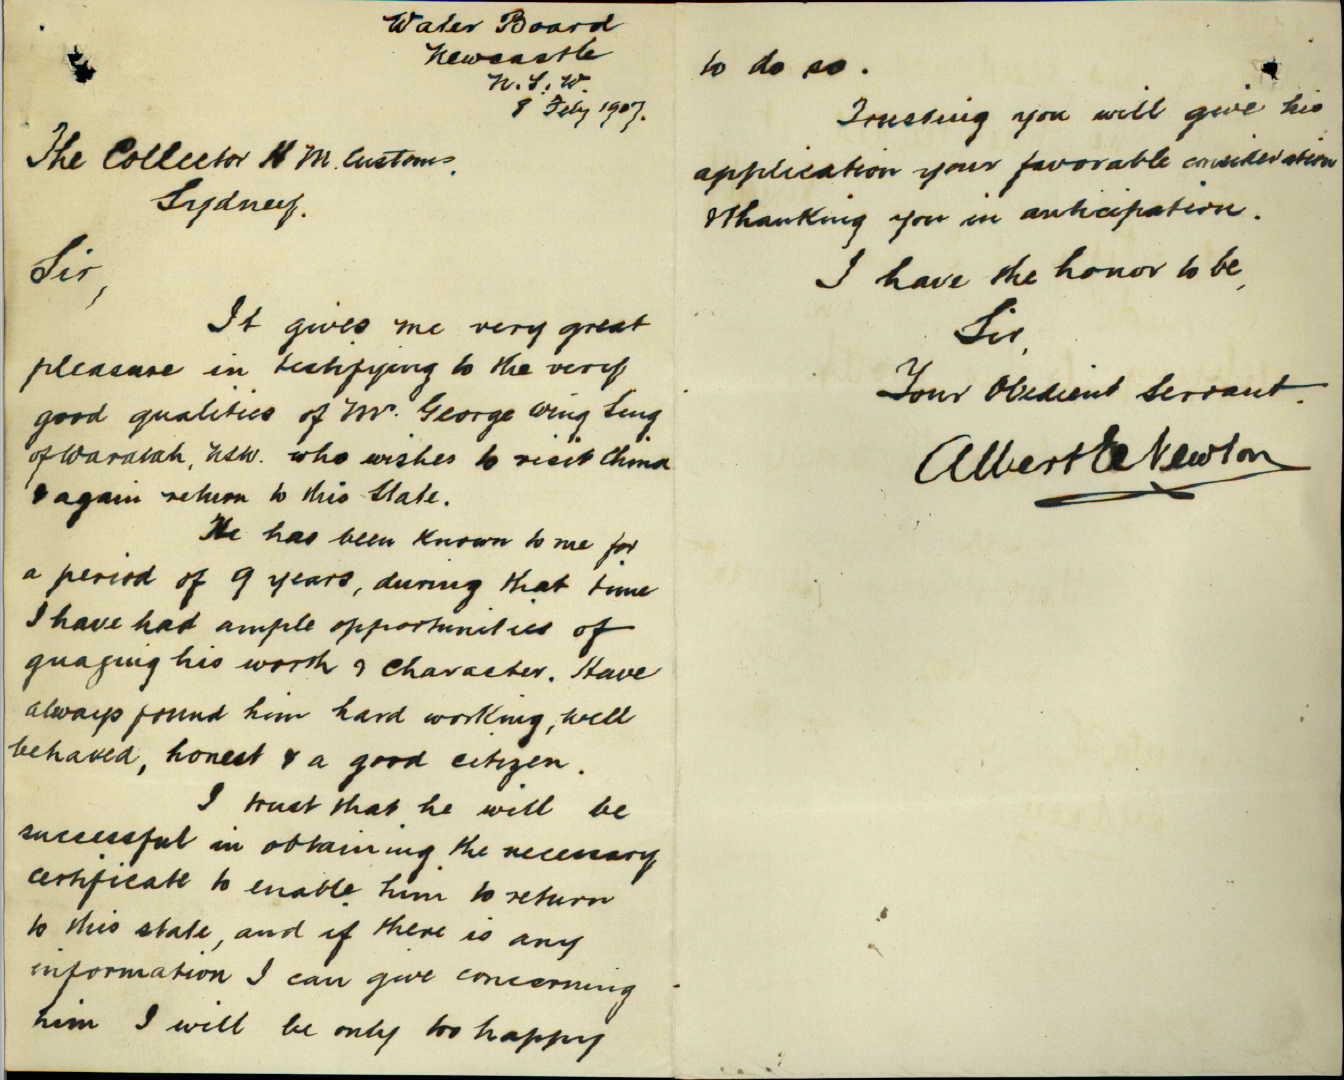 Water Board
Newcastle
N. S. W.
8 Feby 1907.
The Collector H M. Customs.
Sydney.
Sir,
It gives me very great
pleasure in testifying to the very
good qualities of Mr. George Wing Sing
of Waratah, NSW. who wishes to visit China
& again return to this State.
He has been known to me for
a period of 9 years, during that time
I have had ample opportunities of
guaging his worth & character. Have
always found him hard working, well
behaved, honest & a good citizen.
I trust that he will be
successful in obtaining the necessary
certificate to enable him to return
to this state, and if there is any
information I can give concerning
him I will be only too happy
to do so.
Trusting you will give his
application your favorable consideration
& thanking you in anticipation.
I have the honor to be,
Sir,
Your Obedient Servant.
Albert Newton